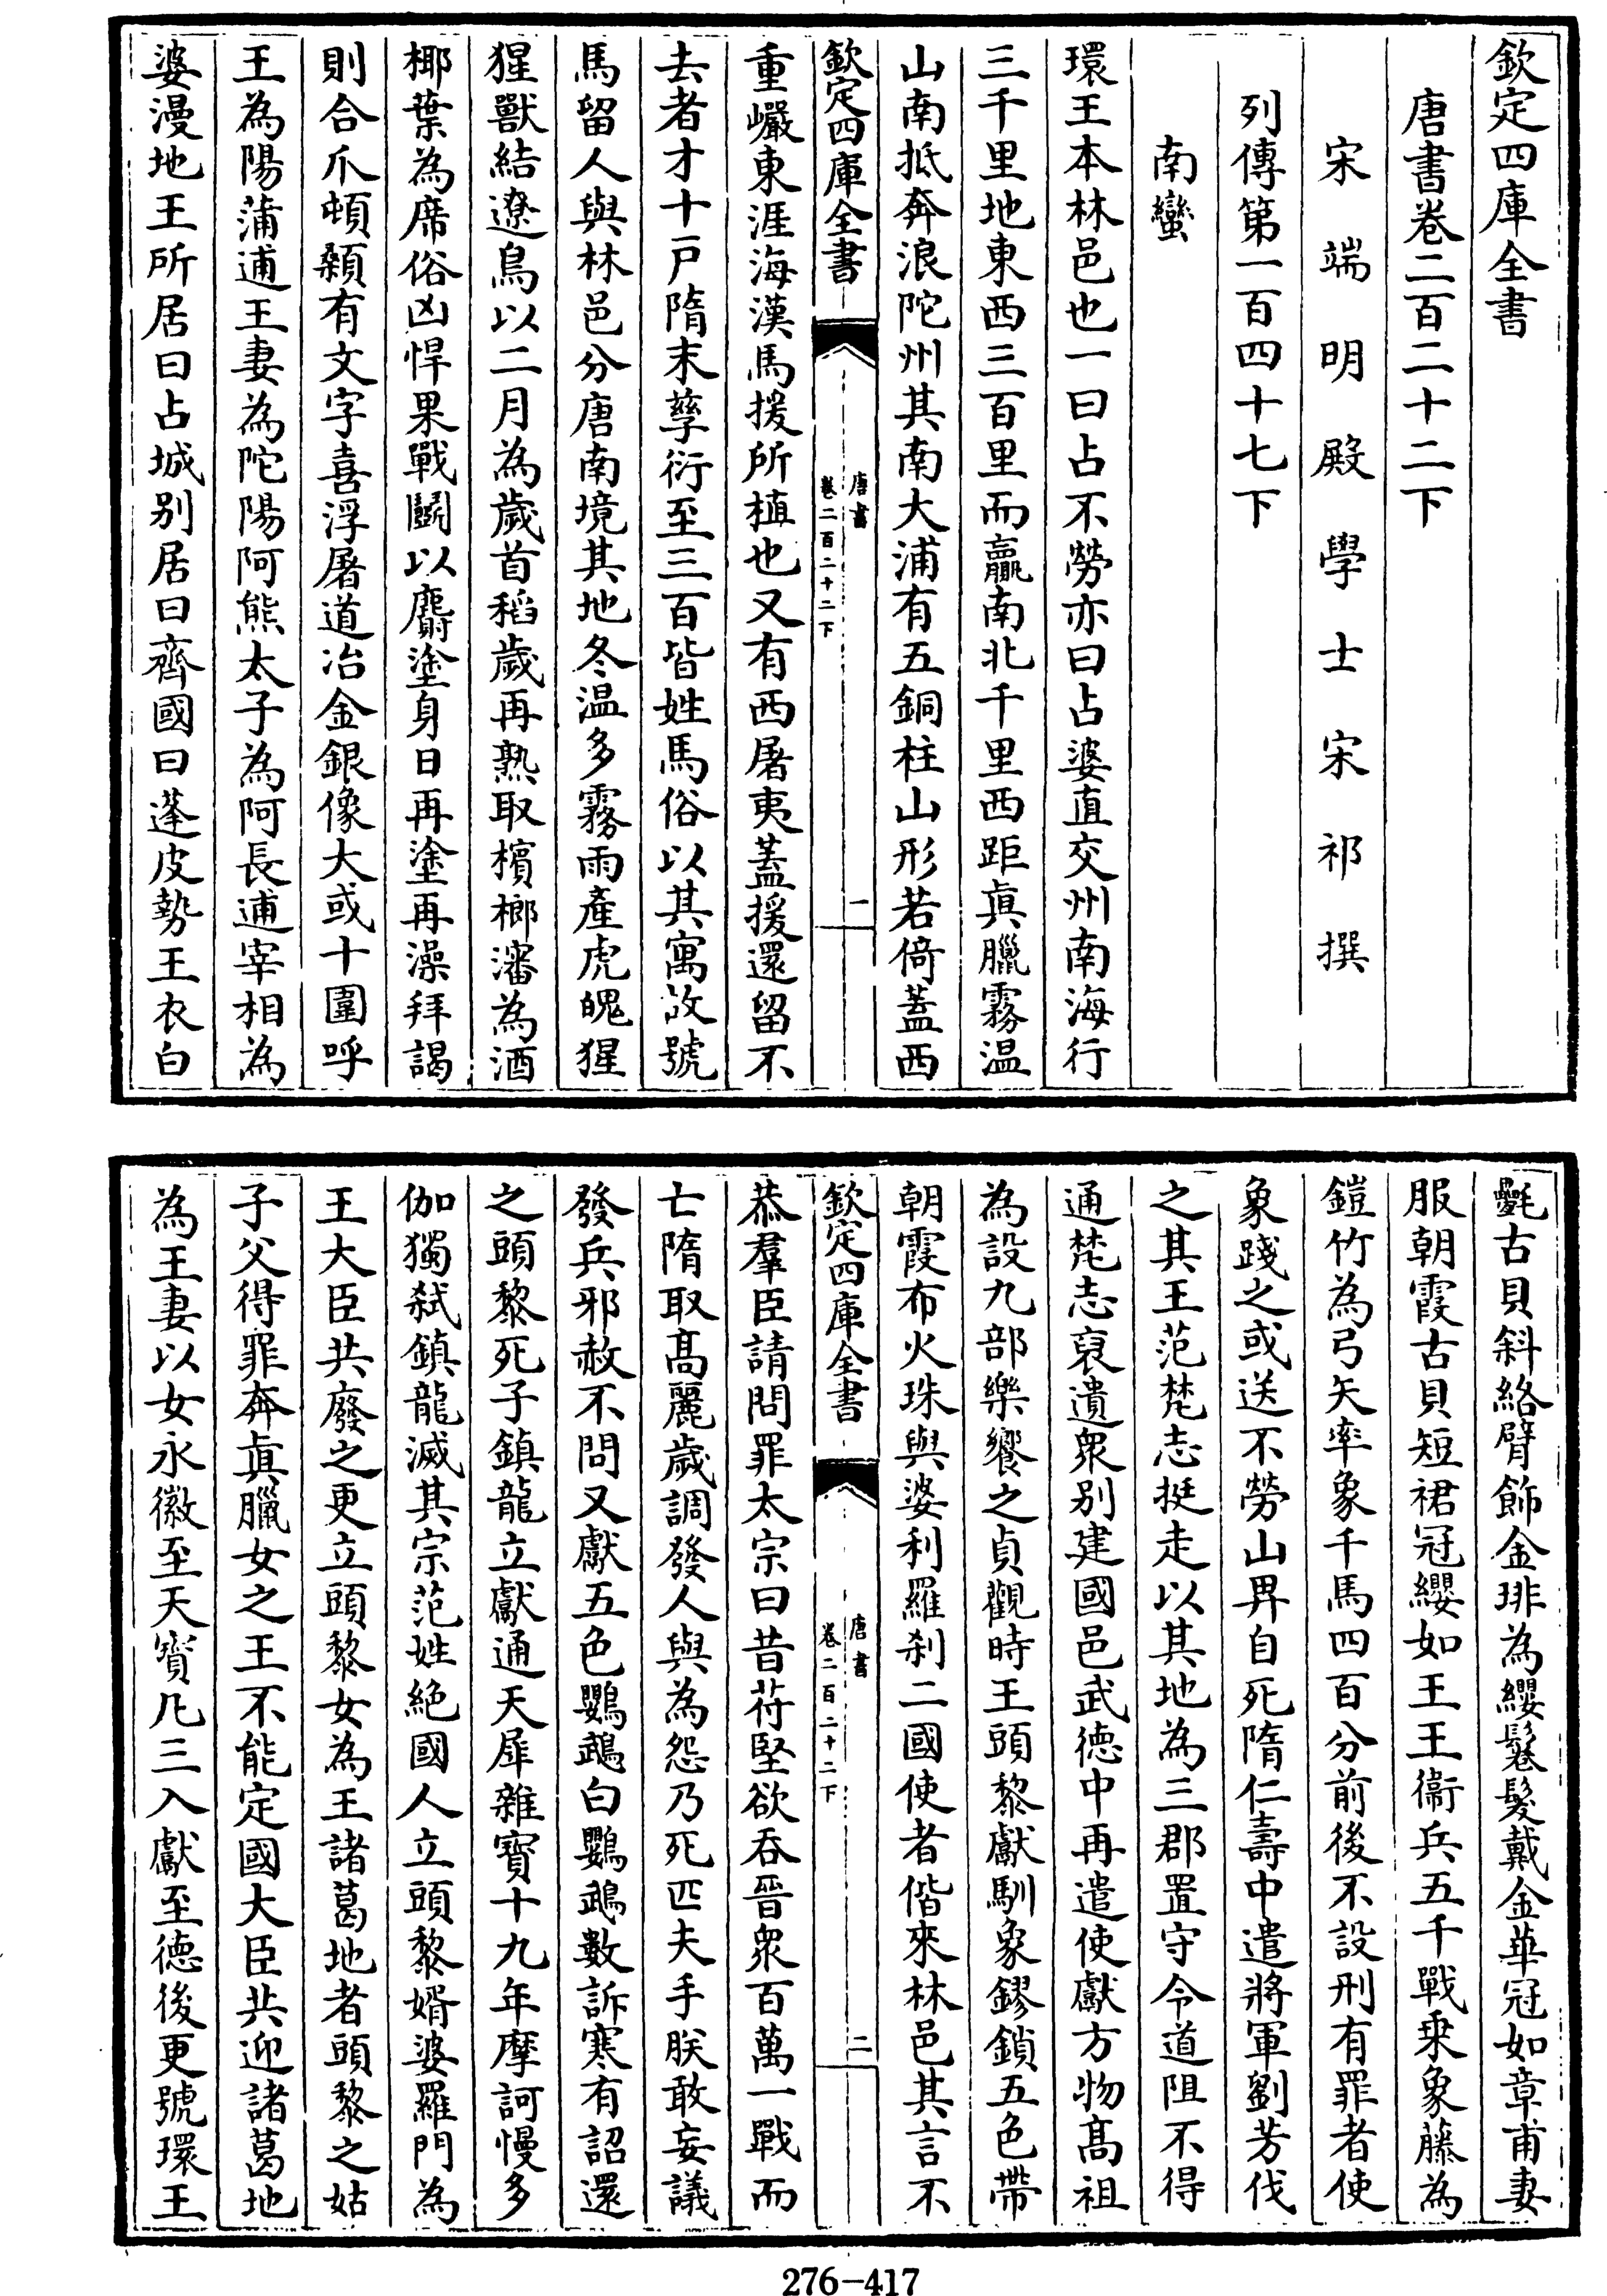 欽定四庫全書
唐書卷二百二十二下
宋端明殿學士宋祁撰
列傳第一百四十七下
南蠻
環王本林邑也一曰占不勞亦曰占婆直交州南海行
三千里地東西三百里而贏南北千里西距真臘霧温
山南抵奔浪陀州其南大浦有五銅柱山形若倚蓋西
欽定四庫全書
唐書
卷二百二十二下
一
重巖東涯海漢馬援所植也又有西屠夷蓋援還留不
去者才十戸隋末孳衍至三百皆姓馬俗以其寓故號
馬留人與林邑分唐南境其地冬温多霧雨產虎魄猩
猩獸結遼鳥以二月為歲首稻歲再熟取檳榔瀋為酒
椰葉為席俗凶悍果戰鬭以麝塗身日再塗再澡拜謁
則合爪頓顙有文字喜浮屠道冶金銀像大或十圍呼
王為陽蒲逋王妻為陀陽阿熊太子為阿長逋宰相為
婆漫地王所居曰占城别居曰齊國曰蓬皮勢王衣白
氎古貝斜絡臂飾金琲為纓鬈髮戴金華冠如章甫妻
服朝霞古貝短裙冠纓如王王衞兵五千戰乗象藤為
鎧竹為弓矢率象千馬四百分前後不設刑有罪者使
象踐之或送不勞山畀自死隋仁壽中遣將軍劉芳伐
之其王范梵志挺走以其地為三郡置守令道阻不得
通梵志裒遺衆别建國邑武德中再遣使獻方物髙祖
為設九部樂饗之貞觀時王頭黎獻馴象鏐鎖五色帶
朝霞布火珠與婆利羅刹二國使者偕來林邑其言不
欽定四庫全書
唐書
卷二百二十二下
二
恭羣臣請問罪太宗曰昔苻堅欲吞晉衆百萬一戰而
亡隋取髙麗歲調發人與為怨乃死匹夫手朕敢妄議
發兵邪赦不問又獻五色鸚鵡白鸚鵡數訴寒有詔還
之頭黎死子鎮龍立獻通天犀雜寶十九年摩訶慢多
伽獨弑鎮龍滅其宗范姓絶國人立頭黎婿婆羅門為
王大臣共廢之更立頭黎女為王諸葛地者頭黎之姑
子父得罪奔真臘女之王不能定國大臣共迎諸葛地
為王妻以女永徽至天寶凡三入獻至德後更號環王
276-417